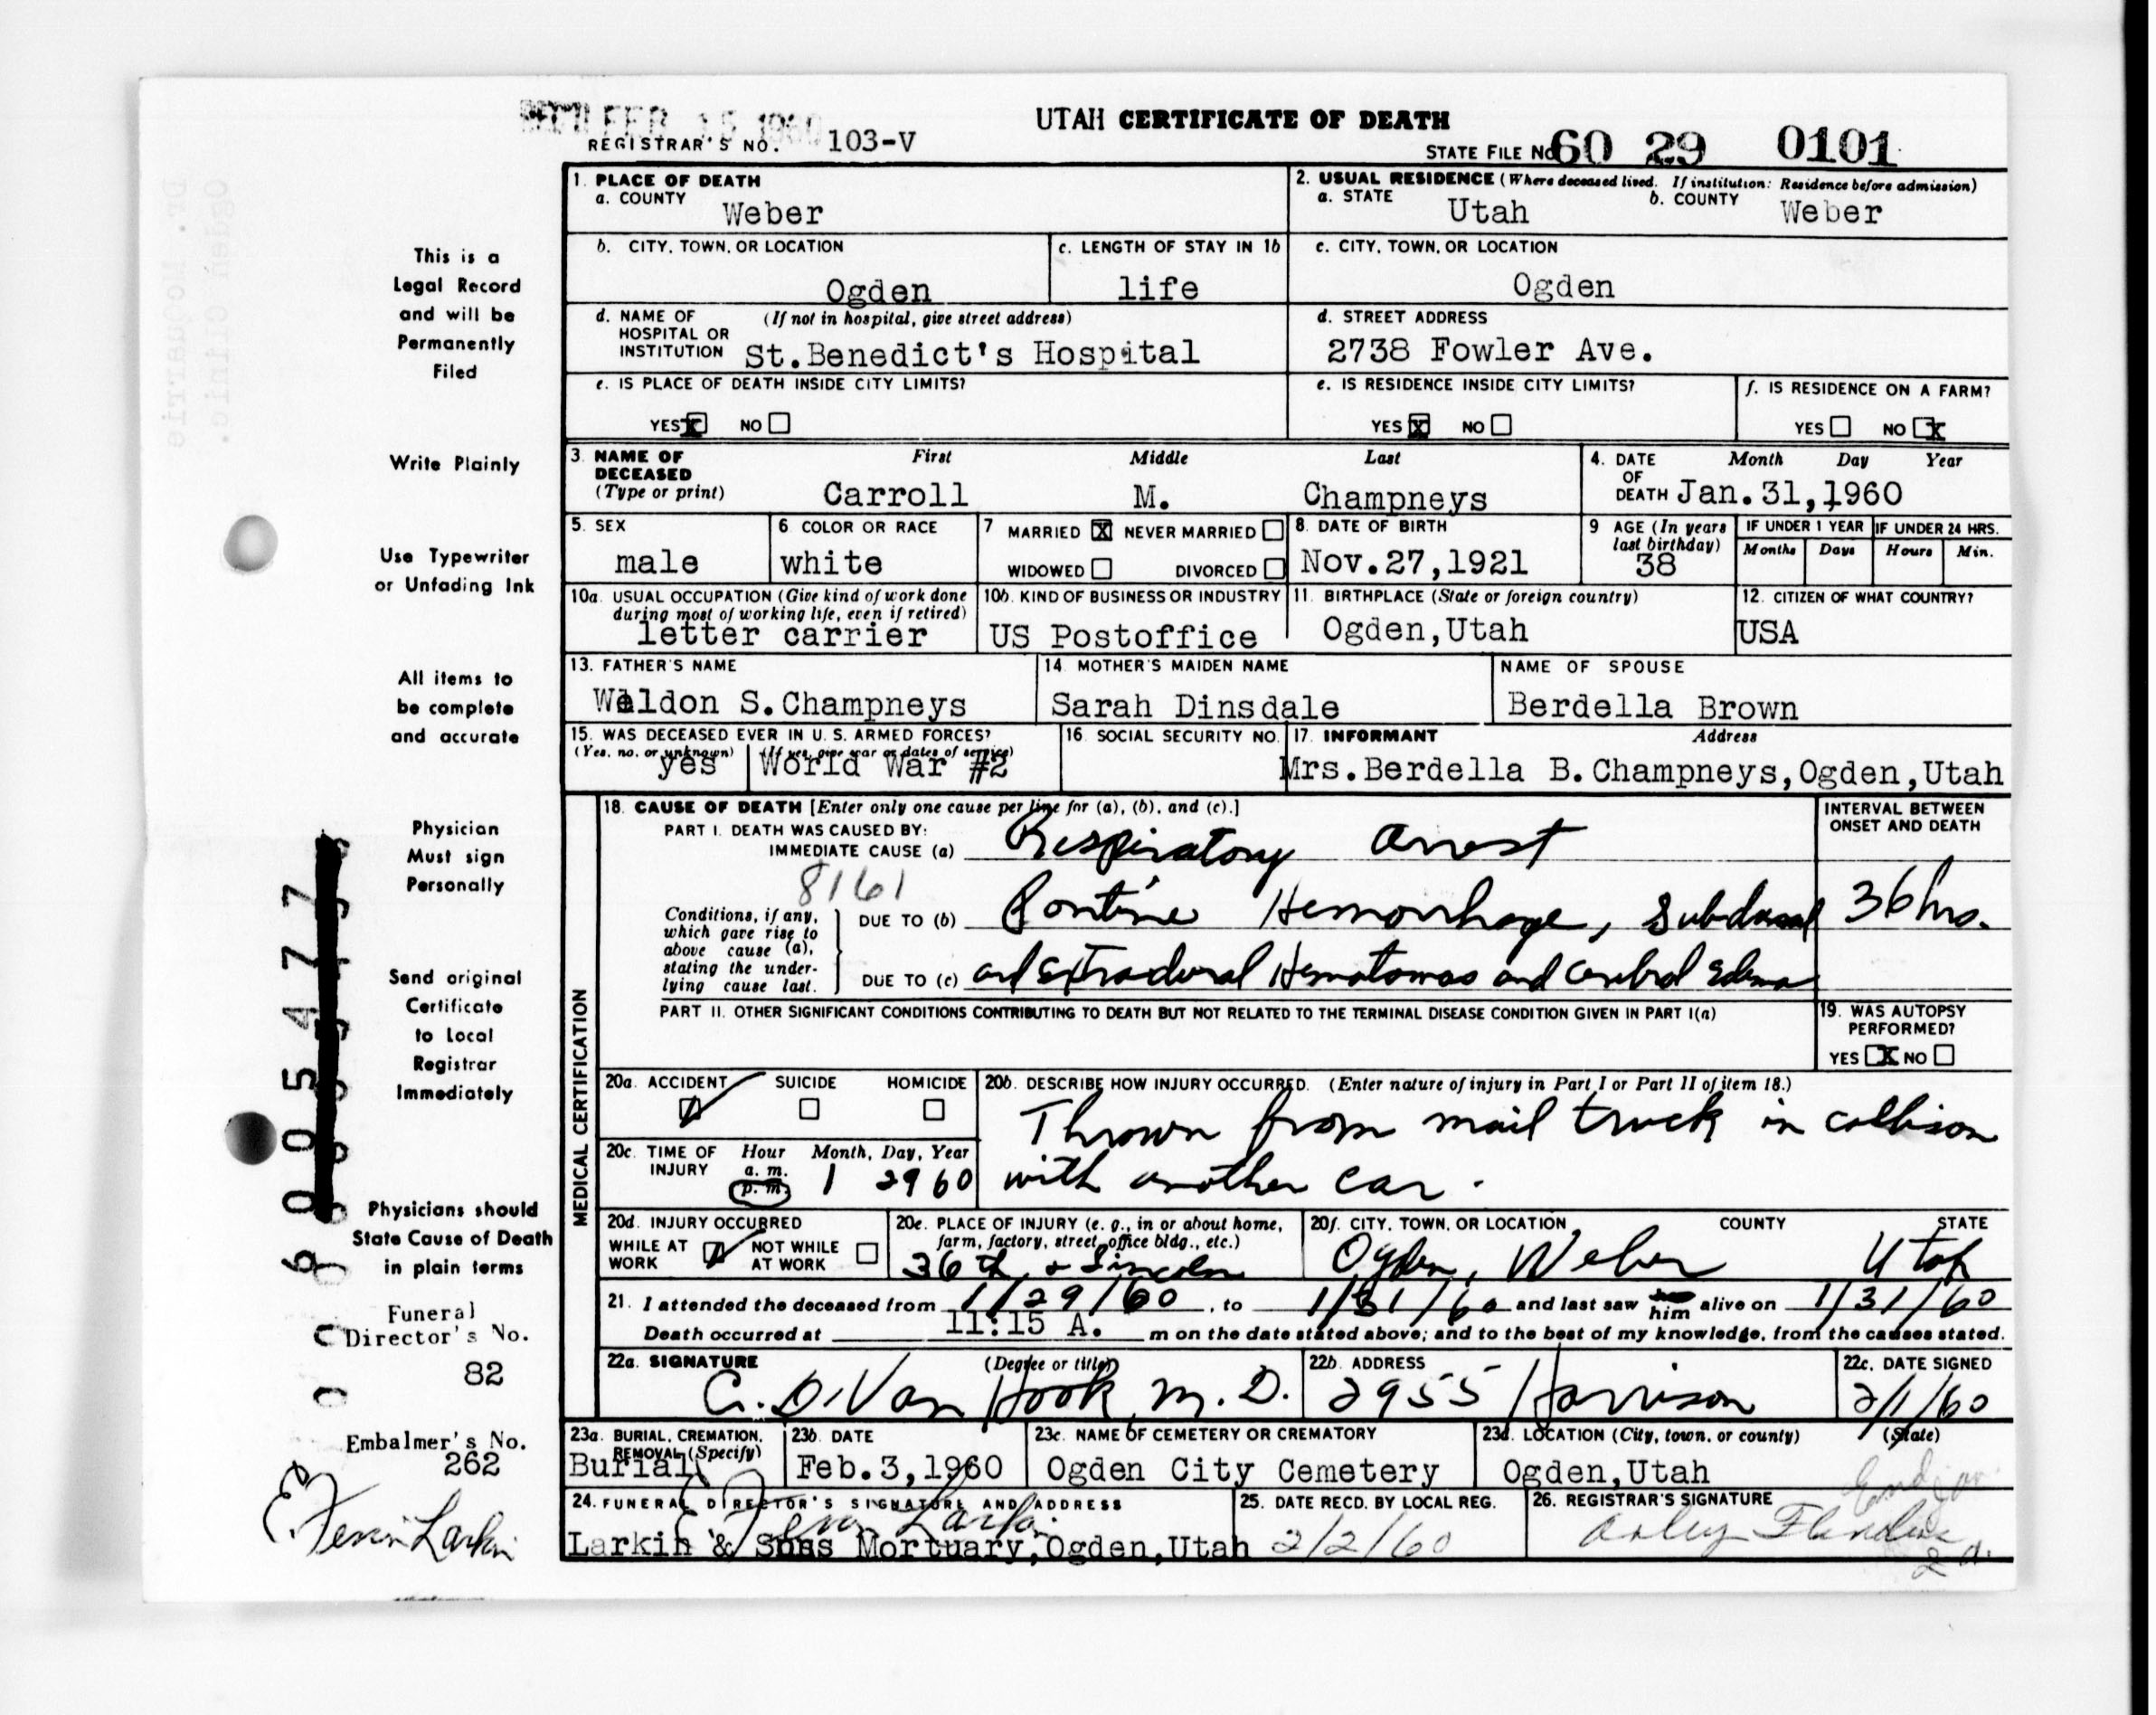 REC'D FEB 15 1960
UTAH CERTIFICATE OF DEATH
REGISTRAR'S NO. 103-V
STATE FILE No 60 29 0101
1. PLACE OF DEATH
a. COUNTY Weber
2. USUAL RESIDENCE (Where deceased lived. If institution: Residence before admission)
a. STATE Utah b. COUNTY Weber
b. CITY, TOWN, OR LOCATION Ogden
c. LENGTH OF STAY IN 1b life
c. CITY, TOWN, OR LOCATION Ogden
d. NAME OF HOSPITAL OR INSTITUTION (If not in hospital, give street address) St.Benedict's Hospital
d. STREET ADDRESS 2738 Fowler Ave.
e. IS PLACE OF DEATH INSIDE CITY LIMITS?
YES X NO
e. IS RESIDENCE INSIDE CITY LIMITS?
YES X NO
f. IS RESIDENCE ON A FARM?
YES NO X
3. NAME OF DECEASED (Type or print)
First Middle Last
Carroll M. Champneys
4. DATE OF DEATH Month Day Year
Jan.31,1960
5. SEX male
6 COLOR OR RACE white
7 MARRIED X NEVER MARRIED
WIDOWED DIVORCED
8. DATE OF BIRTH Nov.27,1921
9 AGE (In years last birthday) 38
IF UNDER 1 YEAR Months Days
IF UNDER 24 HRS. Hours Min.
10a. USUAL OCCUPATION (Give kind of work done during most of working life, even if retired)
letter carrier
10b. KIND OF BUSINESS OR INDUSTRY
US Postoffice
11. BIRTHPLACE (State or foreign country)
Ogden,Utah
12. CITIZEN OF WHAT COUNTRY?
USA
13. FATHER'S NAME
Weldon S.Champneys
14. MOTHER'S MAIDEN NAME
Sarah Dinsdale
NAME OF SPOUSE
Berdella Brown
15. WAS DECEASED EVER IN U. S. ARMED FORCES?
(Yes, no. or unknown) (If yes, give war or dates of service)
yes World War #2
16. SOCIAL SECURITY NO.
17. INFORMANT Address
Mrs.Berdella B.Champneys,Ogden,Utah
MEDICAL CERTIFICATION
18. CAUSE OF DEATH [Enter only one cause per line for (a), (b), and (c).]
PART I. DEATH WAS CAUSED BY:
IMMEDIATE CAUSE (a) Respiratory arrest
8161
Conditions, if any, which gave rise to above cause (a), stating the underlying cause last.
DUE TO (b) Pontine Hemorrhage, Subdural
DUE TO (c) and Extradural Hematomas and Cerebral Edema
INTERVAL BETWEEN ONSET AND DEATH
36 hrs.
PART II. OTHER SIGNIFICANT CONDITIONS CONTRIBUTING TO DEATH BUT NOT RELATED TO THE TERMINAL DISEASE CONDITION GIVEN IN PART I(a)
19. WAS AUTOPSY PERFORMED?
YES X NO
20a. ACCIDENT SUICIDE HOMICIDE
20b. DESCRIBE HOW INJURY OCCURRED. (Enter nature of injury in Part I or Part II of item 18.)
Thrown from mail truck in collision
with another car.
20c. TIME OF INJURY Hour a. m. p. m. Month, Day, Year
1 29 60
20d. INJURY OCCURRED
WHILE AT WORK NOT WHILE AT WORK
20e. PLACE OF INJURY (e. g., in or about home, farm, factory, street, office bldg., etc.)
36th & Lincoln
20f. CITY, TOWN, OR LOCATION COUNTY STATE
Ogden, Weber Utah
21. I attended the deceased from 1/29/60, to 1/31/60 and last saw him alive on 1/31/60
Death occurred at 11:15 A. m on the date stated above; and to the best of my knowledge, from the causes stated.
22a. SIGNATURE (Degree or title)
C. D. Van Hook, M. D.
22b. ADDRESS
2955 Harrison
22c. DATE SIGNED
2/1/60
23a. BURIAL, CREMATION, REMOVAL (Specify)
Burial
23b. DATE
Feb.3,1960
23c. NAME OF CEMETERY OR CREMATORY
Ogden City Cemetery
23d. LOCATION (City, town, or county) (State)
Ogden,Utah
24. FUNERAL DIRECTOR'S SIGNATURE AND ADDRESS
Larkin & Sons Mortuary,Ogden,Utah
25. DATE RECD. BY LOCAL REG.
2/2/60
26. REGISTRAR'S SIGNATURE
This is a
Legal Record
and will be
Permanently
Filed
Write Plainly
Use Typewriter
or Unfading Ink
All items to
be complete
and accurate
Physician
Must sign
Personally
Send original
Certificate
to Local
Registrar
Immediately
Physicians should
State Cause of Death
in plain terms
Funeral
Director's No.
82
Embalmer's No.
262
Larkin
6005477